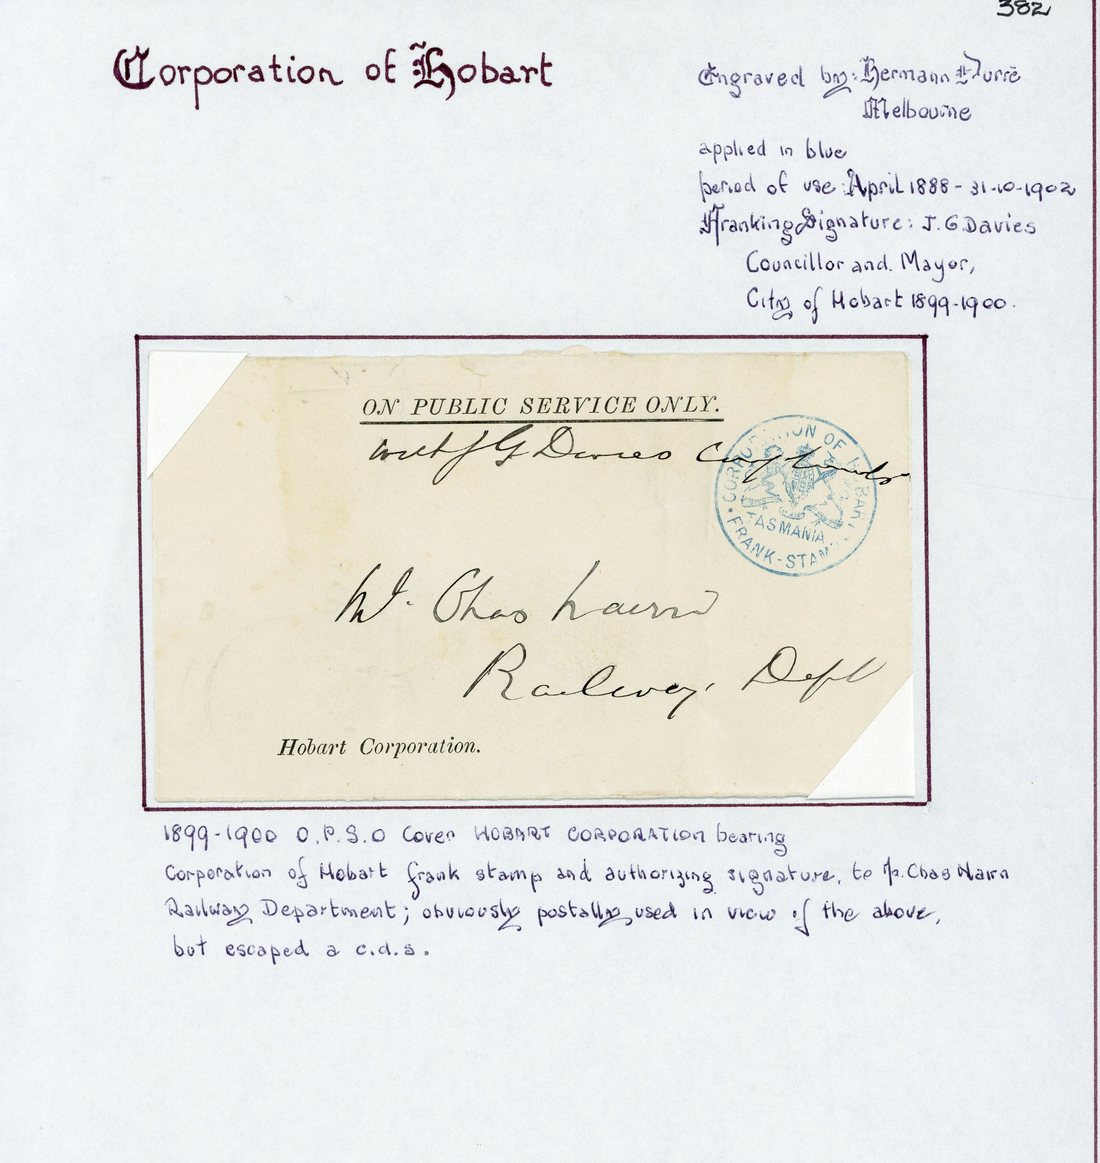 382
Corporation of Hobart
Engraved by: Hermann Durré
Melbourne
applied in blue
period of use: April 1888 - 31-10-1902
Franking Signature: J.G.Davies
Councillor and Mayor,
City of Hobart 1899-1900.
ON PUBLIC SERVICE ONLY.
J G Davies
CORPORATION OF HOBART
TASMANIA
FRANK-STAMP
Mr. Chas Nairn
Railway Dept
Hobart Corporation.
1899-1900 O.P.S.O Cover HOBART CORPORATION bearing
Corporation of Hobart frank stamp and authorizing signature, to Mr. Chas Nairn
Railway Department; obviously postally used in view of the above,
but escaped a c.d.s.